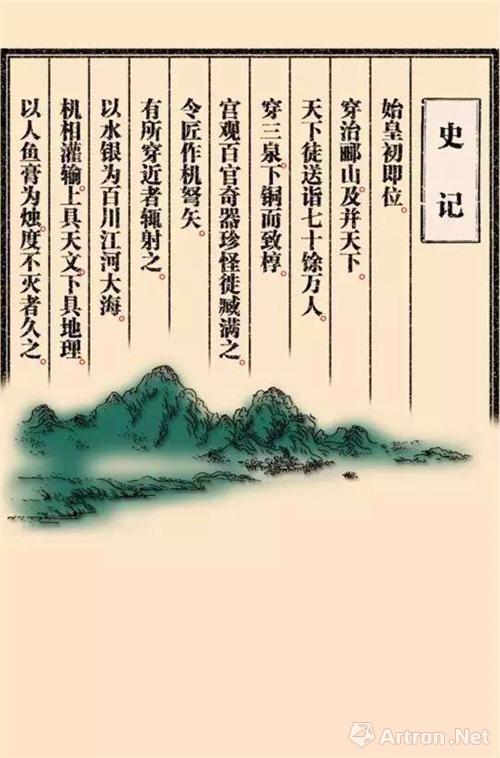 史记
始皇初即位。
穿治郦山。及并天下。
天下徒送诣七十馀万人。
穿三泉。下铜而致椁。
宫观百官奇器珍怪徙臧满之。
令匠作机弩矢。
有所穿近者辄射之。
以水银为百川江河大海。
机相灌输。上具天文。下具地理。
以人鱼膏为烛。度不灭者久之。
Artron.Net